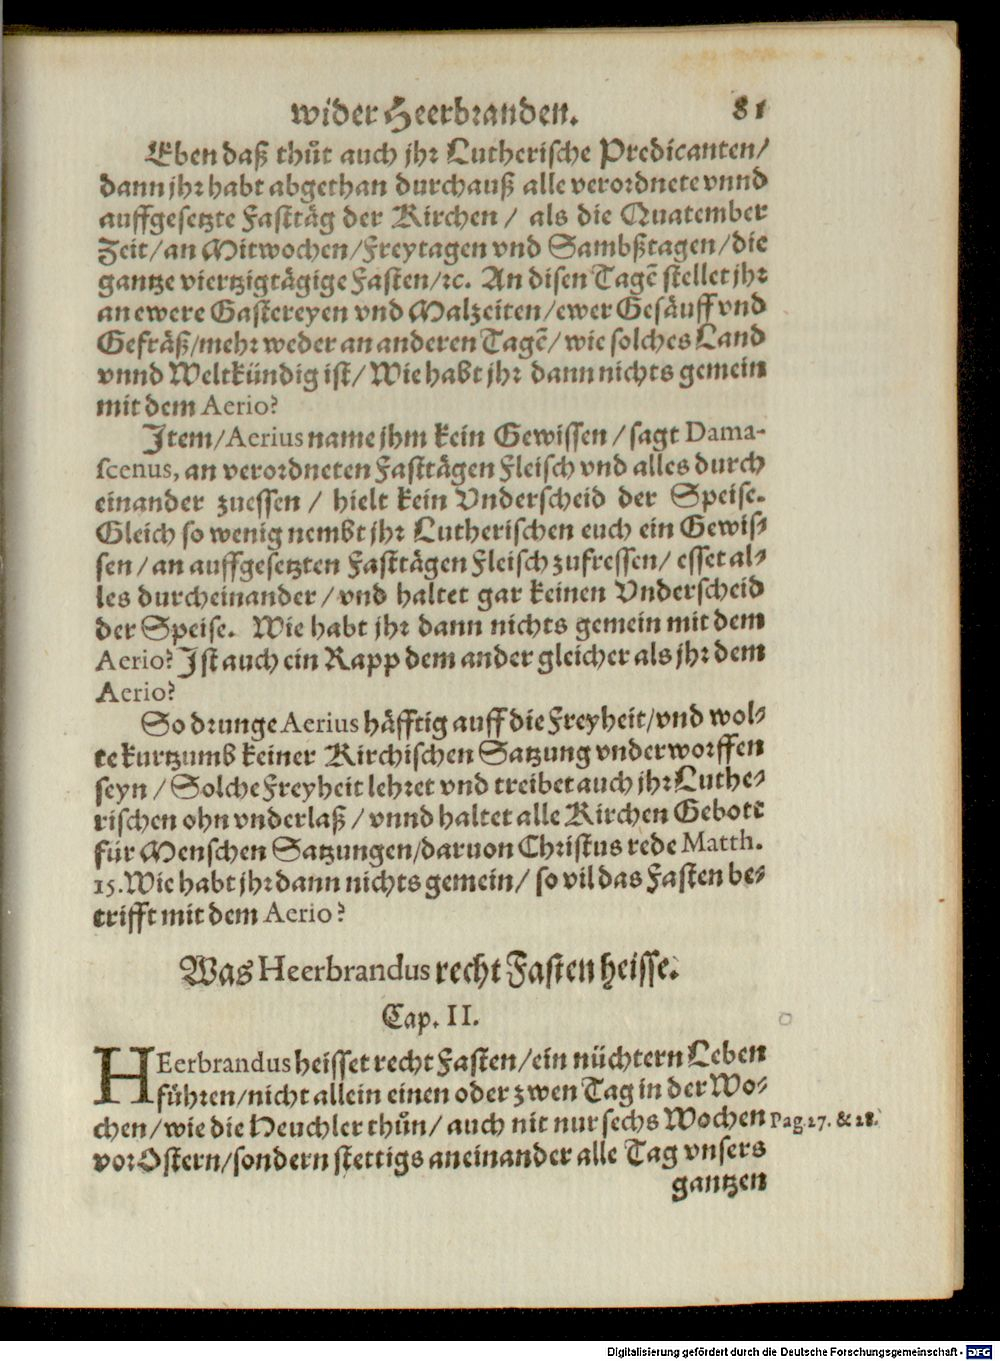 wider Heerbranden. 81
Eben daß thůt auch jhr Lutherische Predicanten/
dann jhr habt abgethan durchauß alle verordnete vnnd
auffgesetzte Fasttäg der Kirchen / als die Quatember
Zeit/an Mitwochen/Freytagen vnd Sambßtagen/die
gantze viertzigtägige Fasten/ꝛc. An disen Tagẽ stellet jhr
an ewere Gastereyen vnd Malzeiten/ewer Gesäuff vnd
Gefräß/mehr weder an anderen Tagẽ/wie solches Land
vnnd Weltkündig ist/ Wie habt jhr dann nichts gemein
mit dem Aerio?
Item/Aerius name jhm kein Gewissen/sagt Dama-
scenus, an verordneten Fasttägen Fleisch vnd alles durch
einander zuessen / hielt kein Vnderscheid der Speise.
Gleich so wenig nembt jhr Lutherischen euch ein Gewis-
sen/an auffgesetzten Fasttägen Fleisch zufressen/ esset al-
les durcheinander/vnd haltet gar keinen Vnderscheid
der Speise. Wie habt jhr dann nichts gemein mit dem
Aerio? Ist auch ein Rapp dem ander gleicher als jhr dem
Aerio?
So drunge Aerius häfftig auff die Freyheit/vnd wol-
te kurtzumb keiner Kirchischen Satzung vnderworffen
seyn / Solche Freyheit lehret vnd treibet auch jhr Luthe-
rischen ohn vnderlaß / vnnd haltet alle Kirchen Gebott
für Menschen Satzungen/daruon Christus rede Matth.
15. Wie habt jhr dann nichts gemein/ so vil das Fasten be-
trifft mit dem Aerio?
Was Heerbrandus recht Fasten heisse.
Cap. II.
HEerbrandus heisset recht Fasten/ein nüchtern Leben
führen/nicht allein einen oder zwen Tag in der Wo-
chen/wie die Heuchler thůn/ auch nit nur sechs Wochen
Pag. 27. & 28.
vor Ostern/sondern stettigs aneinander alle Tag vnsers
gantzen
Digitalisierung gefördert durch die Deutsche Forschungsgemeinschaft - DFG